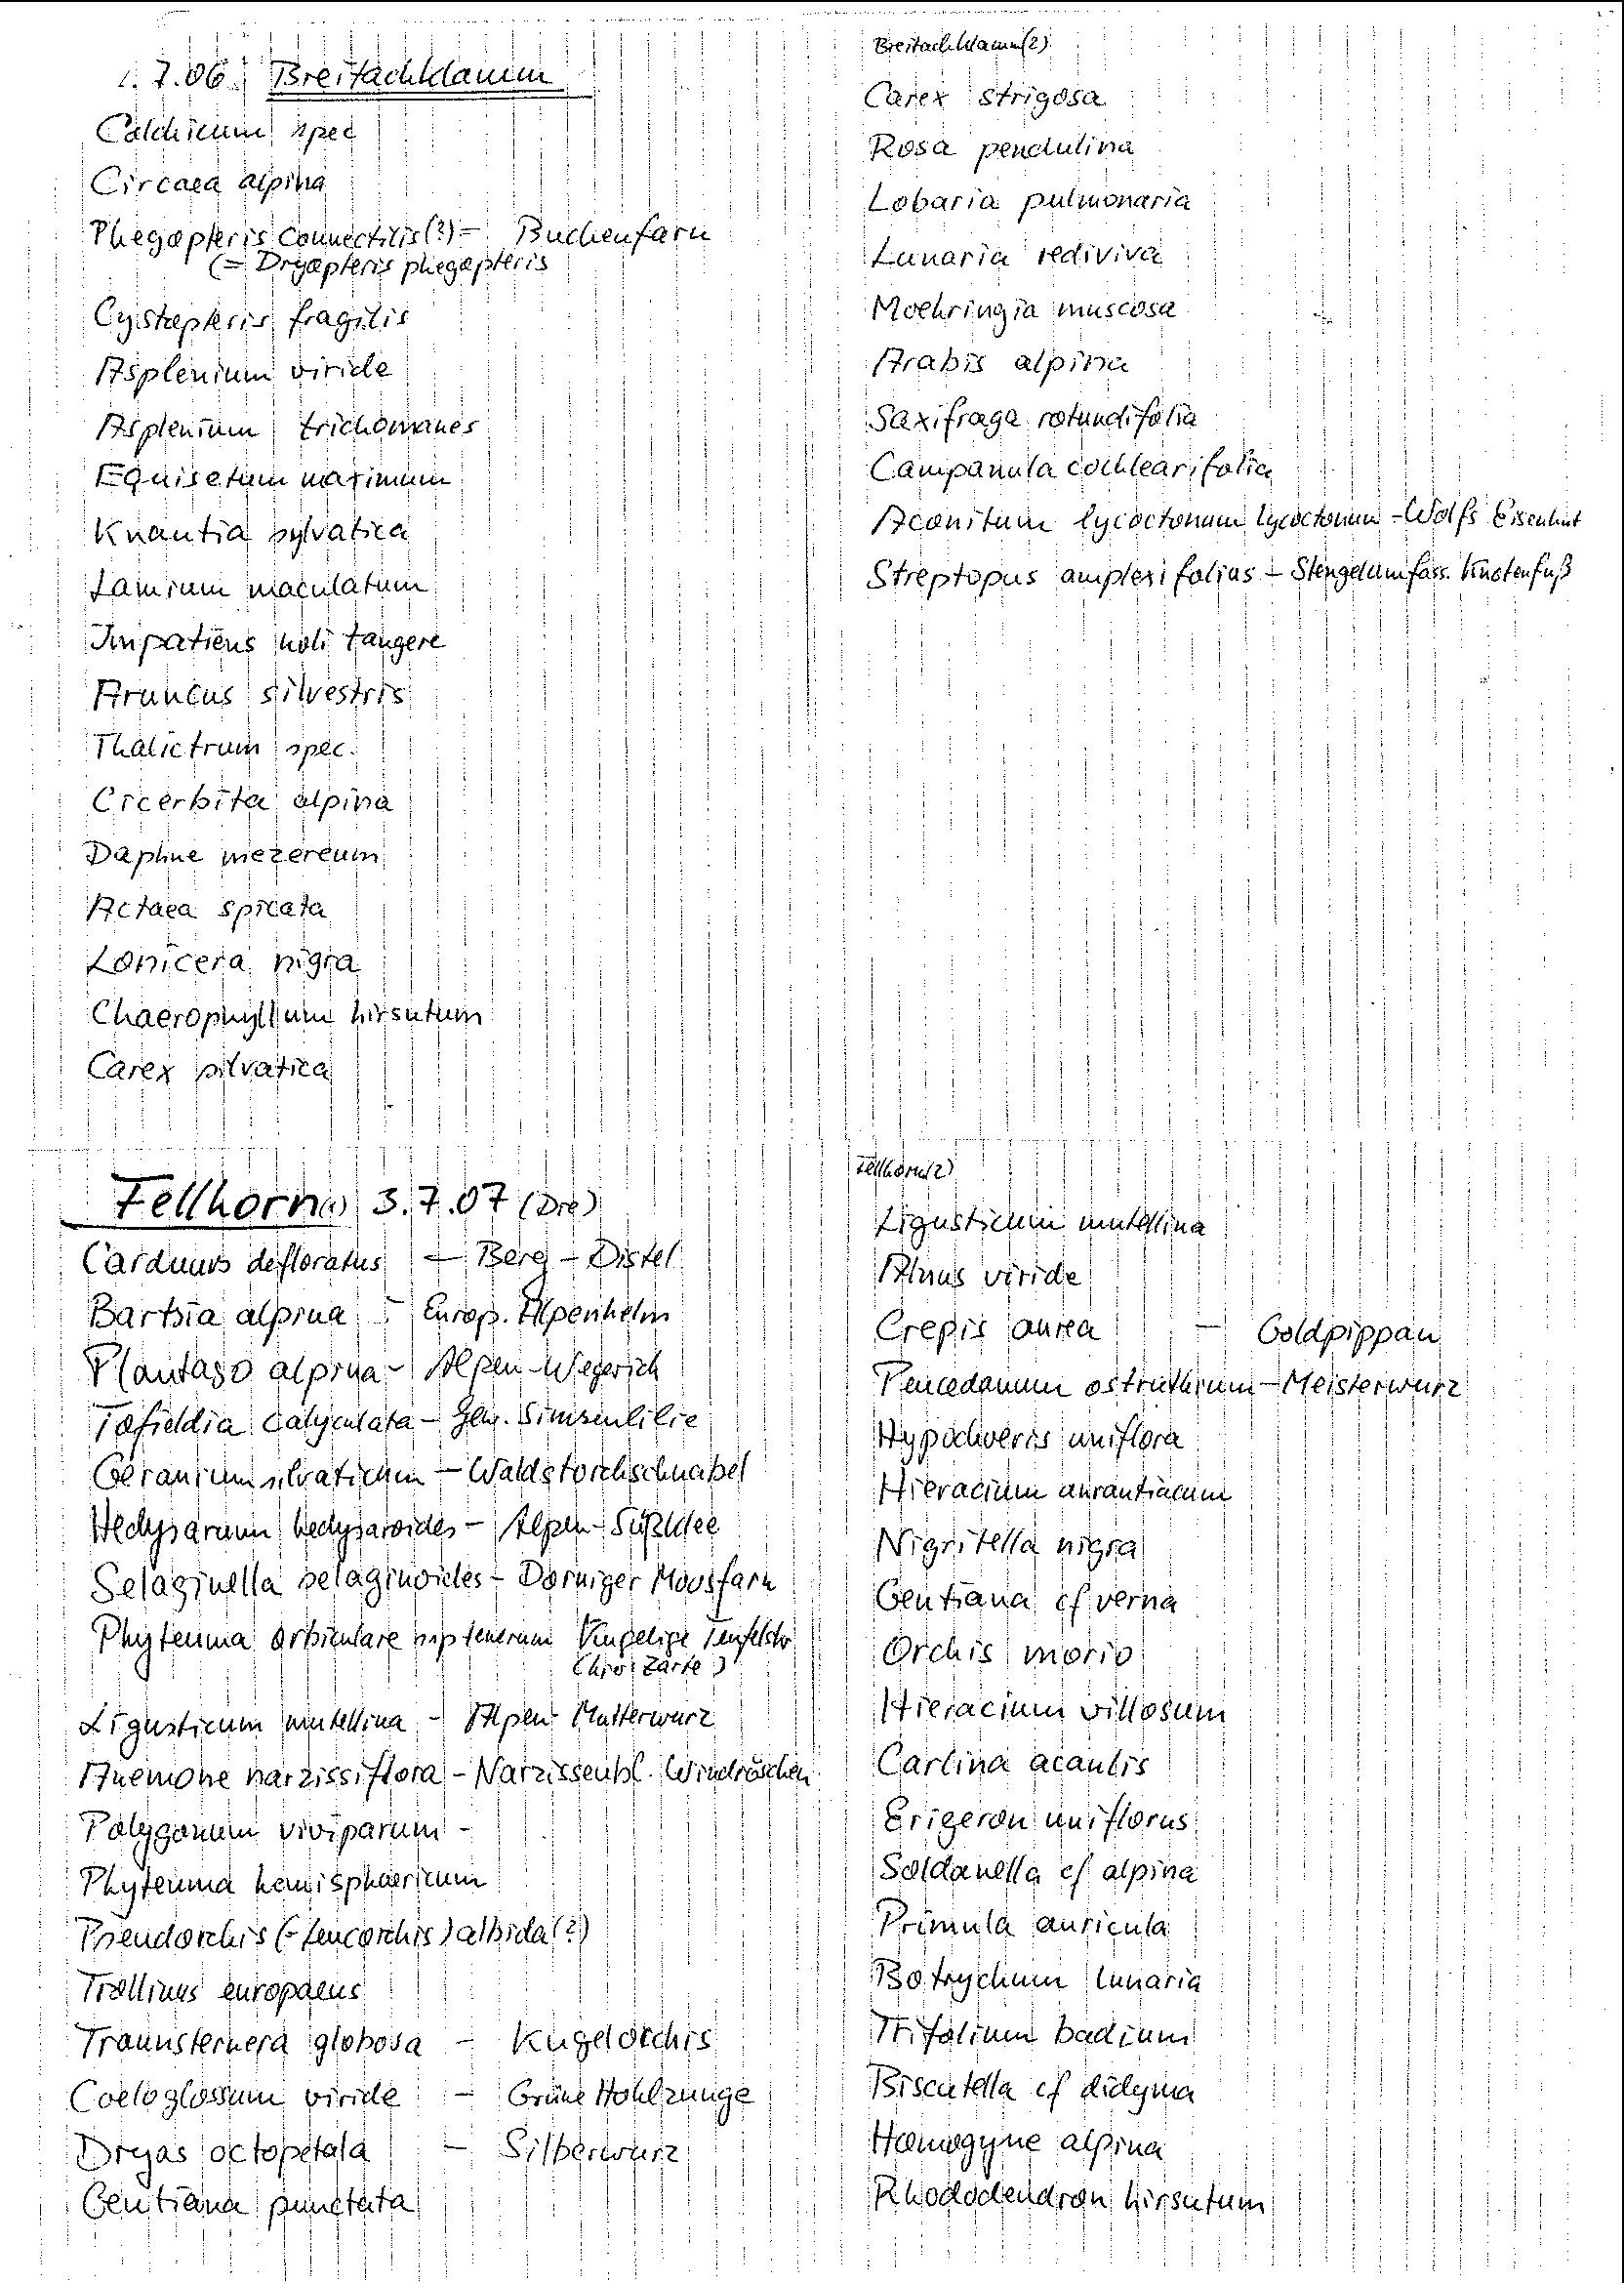 1.7.06 Breitachklamm
Colchicum spec
Circaea alpina
Phegopteris connectilis(?) = Buchenfarn
(= Dryopteris phegopteris
Cystopteris fragilis
Asplenium viride
Asplenium trichomanes
Equisetum maximum
Knautia sylvatica
Lamium maculatum
Impatiens noli tangere
Aruncus silvestris
Thalictrum spec.
Cicerbita alpina
Daphne mezereum
Actaea spicata
Lonicera nigra
Chaerophyllum hirsutum
Carex silvatica
Breitachklamm(2)
Carex strigosa
Rosa pendulina
Lobaria pulmonaria
Lunaria rediviva
Moehringia muscosa
Arabis alpina
Saxifraga rotundifolia
Campanula cochlearifolia
Aconitum lycoctonum lycoctonum - Wolfs Eisenhut
Streptopus amplexifolius - Stengelumfass. Knotenfuß
Fellhorn(1) 3.7.07 (Die)
Carduus defloratus - Berg-Distel
Bartsia alpina - Europ. Alpenhelm
Plantago alpina - Alpen-Wegerich
Tofieldia calyculata - Gew. Simsenlilie
Geranium silvaticum - Waldstorchschnabel
Hedysarum hedysaroides - Alpen-Süßklee
Selaginella selaginoides - Dorniger Moosfarn
Phyteuma orbiculare ssp tenerum Kugelige Teufelskr
(hier: Zarte)
Ligusticum mutellina - Alpen Mutterwurz
Anemone narzissiflora - Narzissenbl. Windröschen
Polygonum viviparum -
Phyteuma hemisphaericum
Pseudorchis (= Leucorchis) albida (?)
Trollius europaeus
Traunsternera globosa - Kugelorchis
Coeloglossum viride - Grüne Hohlzunge
Dryas octopetala - Silberwurz
Gentiana punctata
Fellhorn(2)
Ligusticum mutellina
Alnus viride
Crepis aurea - Goldpippau
Peucedanum ostruthium - Meisterwurz
Hypochoeris uniflora
Hieracium aurantiacum
Nigritella nigra
Gentiana cf verna
Orchis morio
Hieracium villosum
Carlina acaulis
Erigeron uniflorus
Soldanella cf alpina
Primula auricula
Botrychum lunaria
Trifolium badium
Biscutella cf didyma
Homogyne alpina
Rhododendron hirsutum